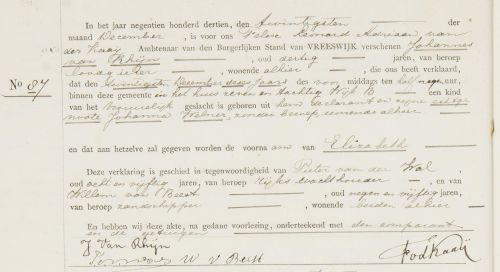 In het jaar negentien honderd dertien, den twintigsten der
maand December, is voor ons Pelve Leonard Adriaan van
der Kaay Ambtenaar van den Burgerlijken Stand van VREESWIJK verschenen Johannes
van Rhijn, oud dertig jaren, van beroep
, wonende alhier, die ons heeft verklaard,
No 87
dat den twintigsten December dezes jaars des voor middags ten half negen ure,
binnen deze gemeente in het huis zeven en tachtig Wijk B een kind
van het vrouwelijk geslacht is geboren uit hem declarant en zijne echtge
noote Johanna , zonder beroep, wonende alhier
en dat aan hetzelve zal gegeven worden de voorna am van Elizabeth
Deze verklaring is geschied in tegenwoordigheid van Pieter van der Wal,
oud acht en vijftig jaren, van beroep Rijks wachthouder, en van
Willem van Beest, oud negen en vijftig jaren,
van beroep zandschipper, wonende beiden alhier
En hebben wij deze akte, na gedane voorlezing, onderteekend met den comparant
en de getuigen
J Van Rhijn
W v Beest
vd Kaaij